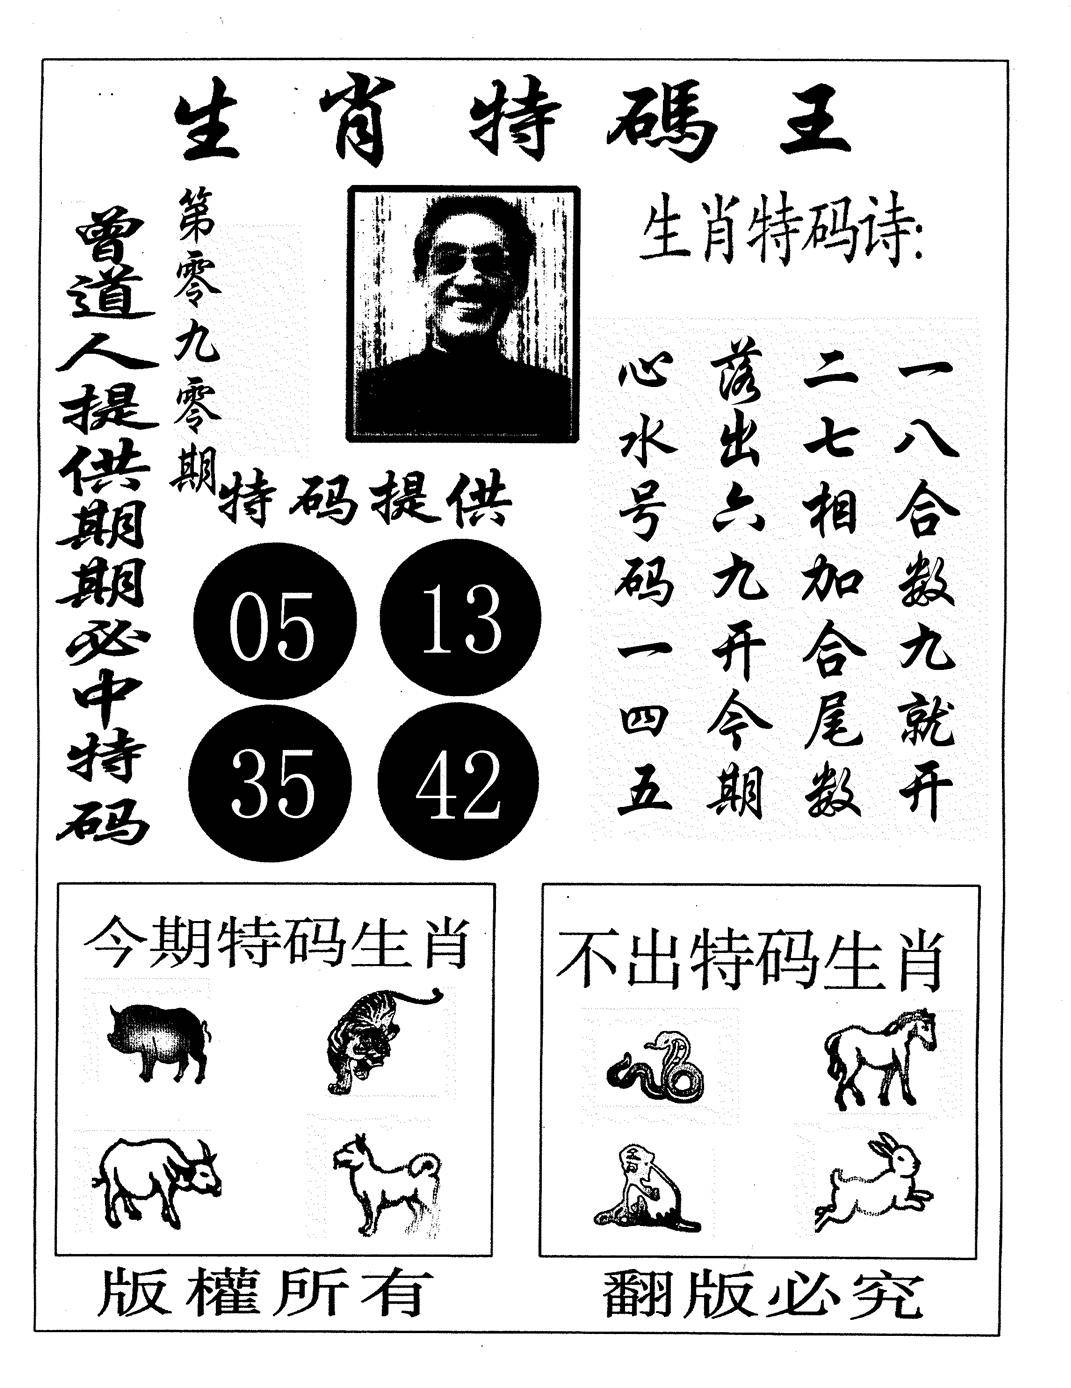 生肖特碼王
曾道人提供期期必中特码
第零九零期
生肖特码诗:
一八合数九就开
二七相加合尾数
落出六九开今期
心水号码一四五
特码提供
05 13
35 42
今期特码生肖
不出特码生肖
版權所有
翻版必究